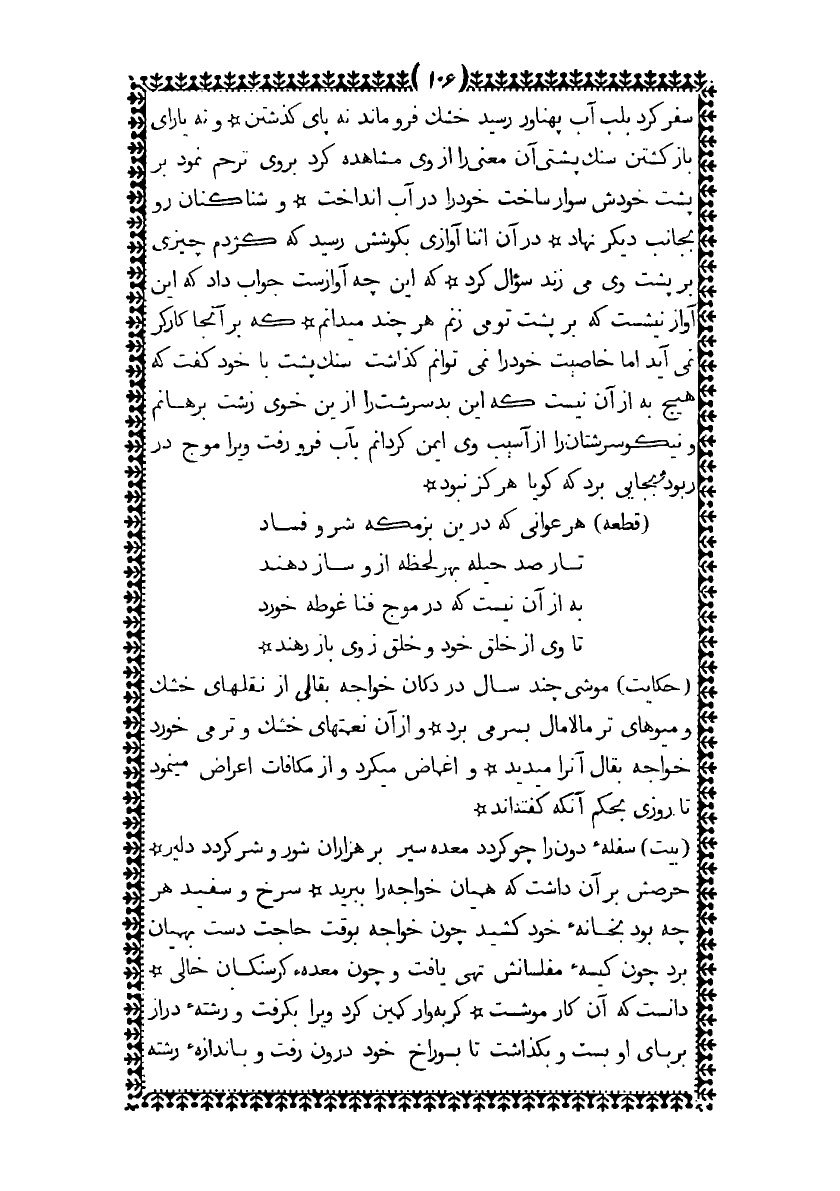 (۱۰۶)
سفر کرد بلب آب پهناور رسید خشك فرو ماند نه پای کذشتن ٭ و نه یارای
باز کشتن سنك پشتی آن معنی را از وی مشاهده کرد بروی ترحم نمود بر
پشت خودش سوار ساخت خودرا در آب انداخت ٭ و شنا کنان رو
بجانب دیکر نهاد ٭ در آن اثنا آوازی بکوشش رسید که کژدم چیزی
بر پشت وی می زند سؤال کرد ٭ که این چه آوازست جواب داد که این
آواز نیشست که بر پشت تو می زنم هر چند میدانم ٭ که بر آنجا کارکر
نمی آید اما خاصیت خودرا نمی توانم کذاشت سنك پشت با خود کفت که
هیچ به از آن نیست که این بدسرشت را از ین خوی زشت برهانم
و نیکوسرشتان را از آسیب وی ایمن کردانم بآب فرو رفت ویرا موج در
ربود و بجایی برد که کویا هرکز نبود ٭
(قطعه) هر عوانی که درین بزمکه شر و فساد
تار صد حیله بهر لحظه ازو ساز دهند
به از آن نیست که در موج فنا غوطه خورد
تا وی از خلق خود و خلق ز وی باز رهند ٭
(حکایت) موشی چند سال در دکان خواجه بقالی از نقلهای خشك
و میوهای تر مالامال بسر می برد ٭ و از آن نعمتهای خشك و تر می خورد
خواجه بقال آنرا میدید ٭ و اغماض میکرد و از مکافات اعراض مینمود
تا روزی بحکم آنکه کفته‌اند ٭
(بیت) سفلهٴ دون را چو کردد معده سیر  بر هزاران شور و شر کردد دلیر ٭
حرصش بر آن داشت که همیان خواجه را ببرید ٭ سرخ و سفید هر
چه بود بخانهٴ خود کشید چون خواجه بوقت حاجت دست بهمیان
برد چون کیسهٴ مفلسانش تهی یافت و چون معدهٴ کرسنکان خالی ٭
دانست که آن کار موشست ٭ کربه‌وار کمین کرد ویرا بکرفت و رشتهٴ دراز
بر پای او بست و بکذاشت تا بسوراخ خود درون رفت و باندازهٴ رشته